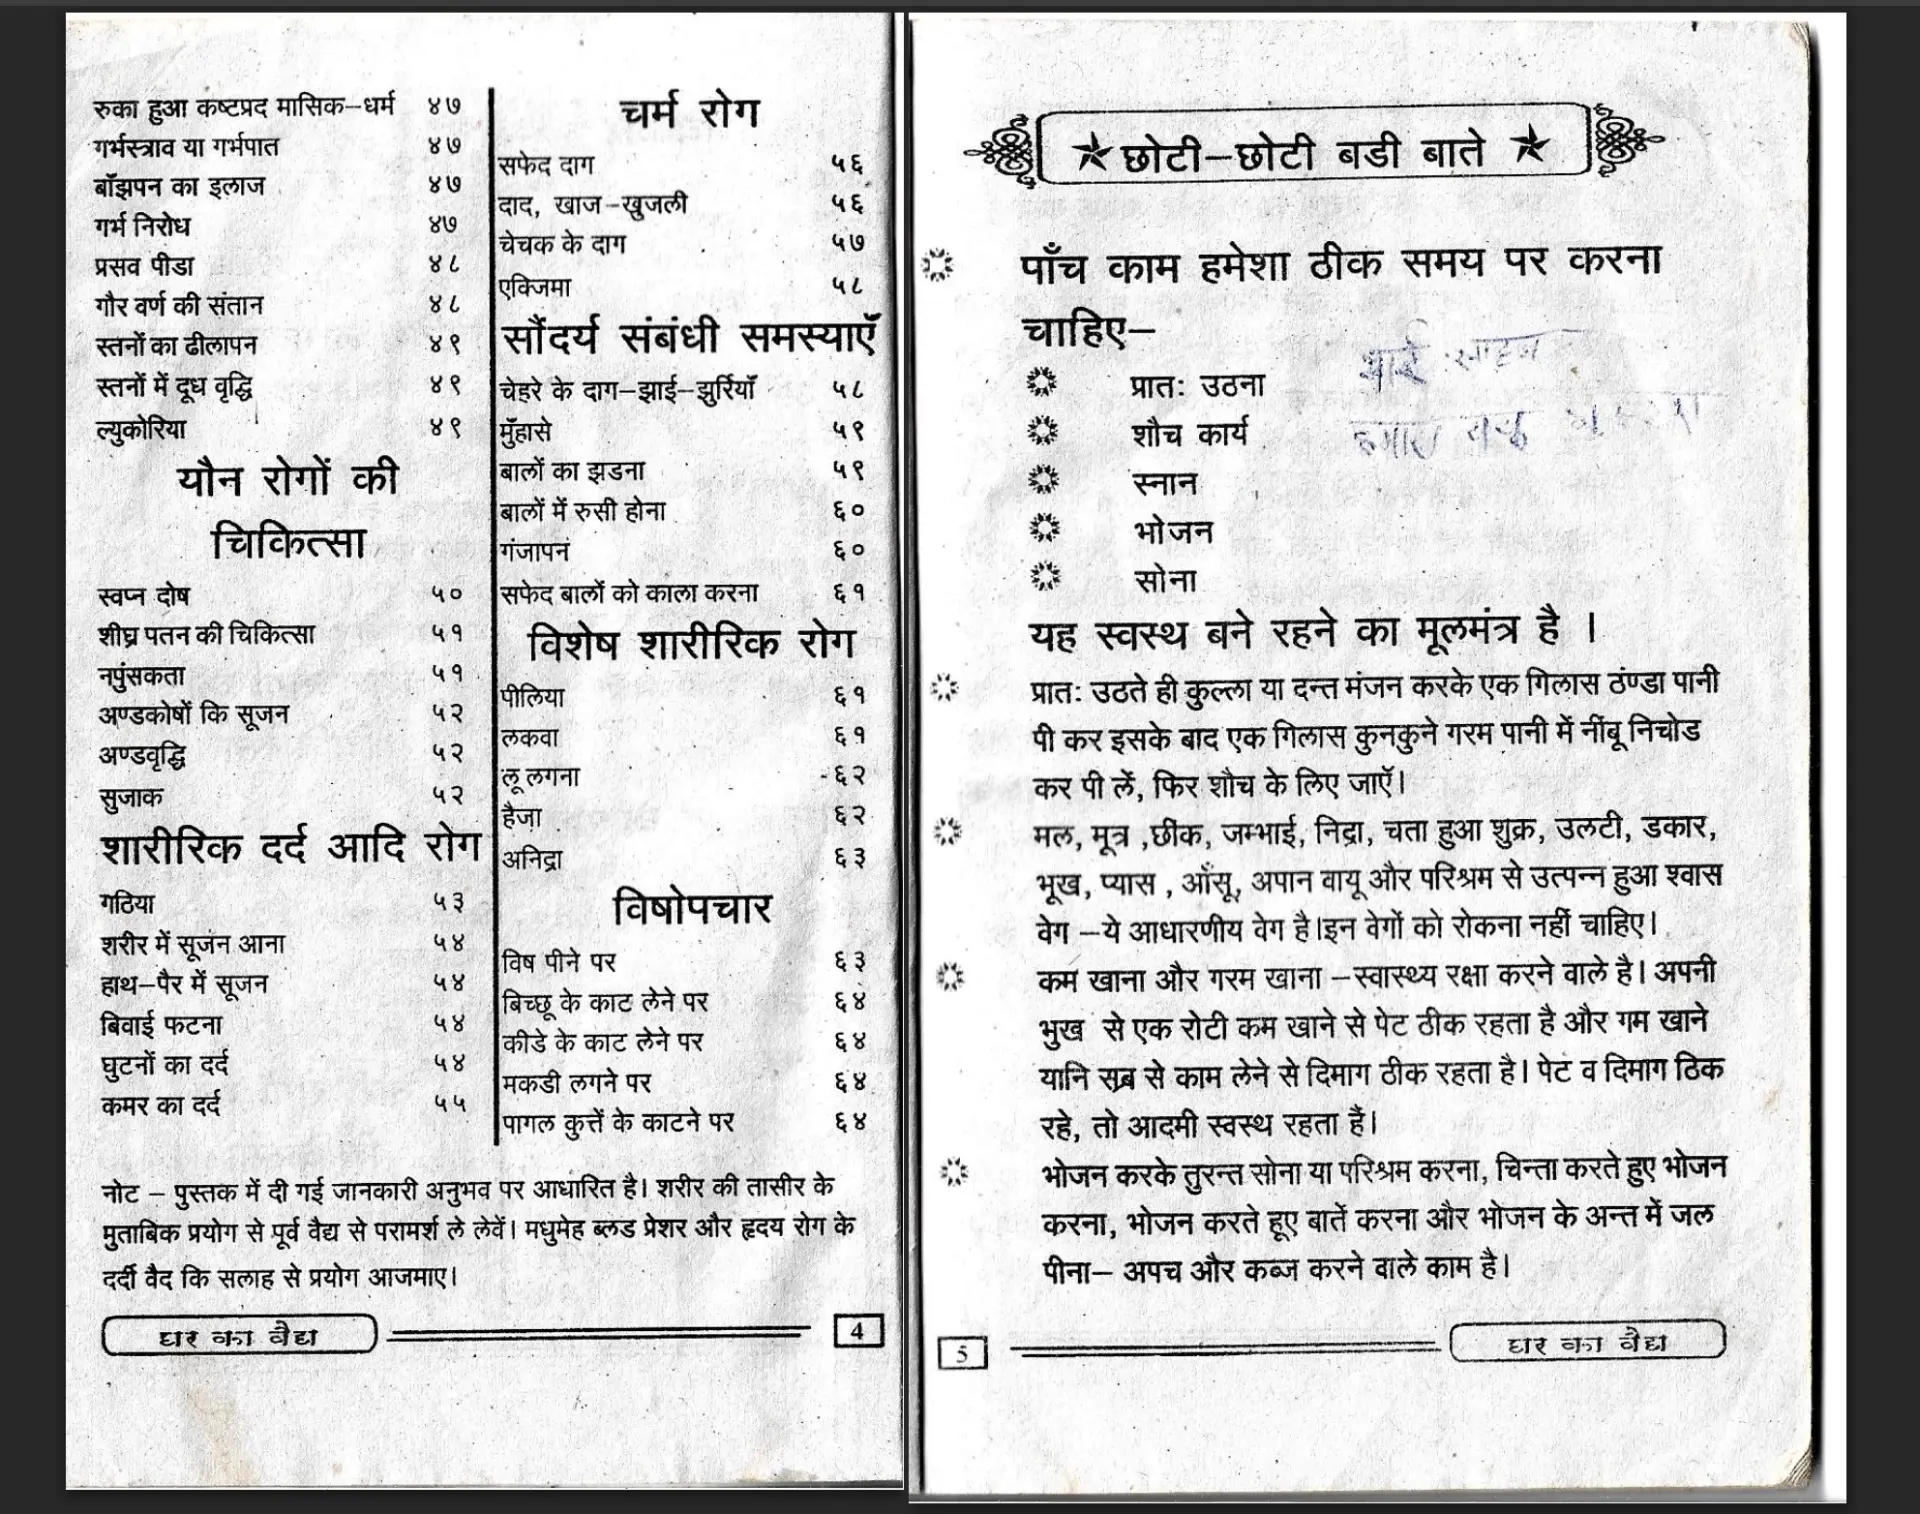 रुका हुआ कष्टप्रद मासिक–धर्म ४७
गर्भस्त्राव या गर्भपात ४७
बाँझपन का इलाज ४७
गर्भ निरोध ४७
प्रसव पीडा ४८
गौर वर्ण की संतान ४८
स्तनों का ढीलापन ४९
स्तनों में दूध वृद्धि ४९
ल्युकोरिया ४९
यौन रोगों की
चिकित्सा
स्वप्न दोष ५०
शीघ्र पतन की चिकित्सा ५१
नपुंसकता ५१
अण्डकोषों कि सूजन ५२
अण्डवृद्धि ५२
सुजाक ५२
शारीरिक दर्द आदि रोग
गठिया ५३
शरीर में सूजन आना ५४
हाथ–पैर में सूजन ५४
बिवाई फटना ५४
घुटनों का दर्द ५४
कमर का दर्द ५५
चर्म रोग
सफेद दाग ५६
दाद, खाज–खुजली ५६
चेचक के दाग ५७
एक्जिमा ५८
सौंदर्य संबंधी समस्याएँ
चेहरे के दाग–झाई–झुर्रियाँ ५८
मुँहासे ५९
बालों का झडना ५९
बालों में रुसी होना ६०
गंजापन ६०
सफेद बालों को काला करना ६१
विशेष शारीरिक रोग
पीलिया ६१
लकवा ६१
लू लगना ६२
हैजा ६२
अनिद्रा ६३
विषोपचार
विष पीने पर ६३
बिच्छू के काट लेने पर ६४
कीडे के काट लेने पर ६४
मकडी लगने पर ६४
पागल कुत्तें के काटने पर ६४
नोट – पुस्तक में दी गई जानकारी अनुभव पर आधारित है। शरीर की तासीर के
मुताबिक प्रयोग से पूर्व वैद्य से परामर्श ले लेवें। मधुमेह ब्लड प्रेशर और हृदय रोग के
दर्दी वैद कि सलाह से प्रयोग आजमाए।
घर का वैद्य 4
छोटी–छोटी बडी बाते
पाँच काम हमेशा ठीक समय पर करना
चाहिए–
प्रातः उठना
शौच कार्य
स्नान
भोजन
सोना
यह स्वस्थ बने रहने का मूलमंत्र है ।
प्रातः उठते ही कुल्ला या दन्त मंजन करके एक गिलास ठंण्डा पानी
पी कर इसके बाद एक गिलास कुनकुने गरम पानी में नींबू निचोड
कर पी लें, फिर शौच के लिए जाएँ।
मल, मूत्र ,छींक, जम्भाई, निद्रा, चता हुआ शुक्र, उलटी, डकार,
भूख, प्यास , आँसू, अपान वायू और परिश्रम से उत्पन्न हुआ श्वास
वेग –ये आधारणीय वेग है।इन वेगों को रोकना नहीं चाहिए।
कम खाना और गरम खाना –स्वास्थ्य रक्षा करने वाले है। अपनी
भुख से एक रोटी कम खाने से पेट ठीक रहता है और गम खाने
यानि सब्र से काम लेने से दिमाग ठीक रहता है। पेट व दिमाग ठिक
रहे, तो आदमी स्वस्थ रहता है।
भोजन करके तुरन्त सोना या परिश्रम करना, चिन्ता करते हुए भोजन
करना, भोजन करते हूए बातें करना और भोजन के अन्त में जल
पीना– अपच और कब्ज करने वाले काम है।
5 घर का वैद्य